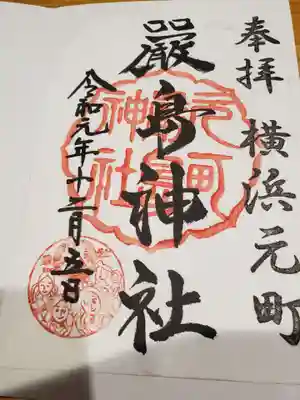 奉拝 横浜元町
嚴島神社
令和元年十二月五日
元町
神社